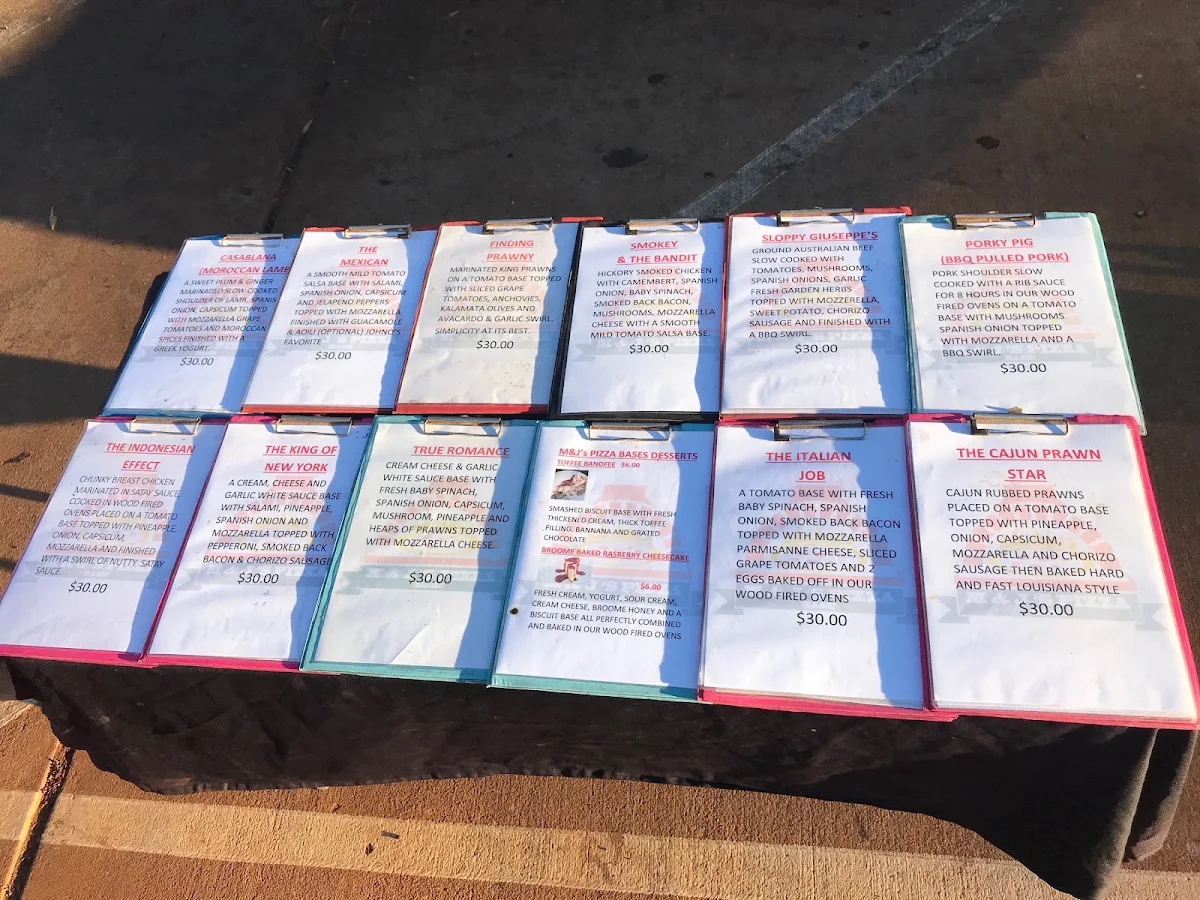 CASABLANA
(MOROCCAN LAMB
A SWEET PLUM & GINGER
MARINADED SLOW COOKED
SHOULDER OF LAMB, SPANIS
ONION, CAPSICUM TOPPED
WITH MOZZARELLA GRAPE
TOMATOES AND MOROCCAN
SPICES FINISHED WITH A
GREEK YOGURT.
$30.00
THE
MEXICAN
A SMOOTH MILD TOMATO
SALSA BASE WITH SALAMI,
SPANISH ONION, CAPSICUM
AND JELAPENO PEPPERS
TOPPED WITH MOZZARELLA
FINISHED WITH GUACAMOLE
& AOILI (OPTIONAL) JOHNY'S
FAVORITE
$30.00
FINDING
PRAWNY
MARINATED KING PRAWNS
ON A TOMATO BASE TOPPED
WITH SLICED GRAPE
TOMATOES, ANCHOVIES,
KALAMATA OLIVES AND
AVACARDO & GARLIC SWIRL.
SIMPLICITY AT ITS BEST.
$30.00
SMOKEY
& THE BANDIT
HICKORY SMOKED CHICKEN
WITH CAMEMBERT, SPANISH
ONION, BABY SPINACH,
SMOKED BACK BACON,
MUSHROOMS, MOZZARELLA
CHEESE WITH A SMOOTH
MILD TOMATO SALSA BASE.
$30.00
SLOPPY GIUSEPPE'S
GROUND AUSTRALIAN BEEF
SLOW COOKED WITH
TOMATOES, MUSHROOMS,
SPANISH ONIONS, GARLIC
FRESH GARDEN HERBS
TOPPED WITH MOZZERELLA,
SWEET POTATO, CHORIZO
SAUSAGE AND FINISHED WITH
A BBQ SWIRL.
$30.00
PORKY PIG
(BBQ PULLED PORK)
PORK SHOULDER SLOW
COOKED WITH A RIB SAUCE
FOR 8 HOURS IN OUR WOOD
FIRED OVENS ON A TOMATO
BASE WITH MUSHROOMS
SPANISH ONION TOPPED
WITH MOZZARELLA AND A
BBQ SWIRL.
$30.00
THE INDONESIAN
EFFECT
CHUNKY BREAST CHICKEN
MARINATED IN SATAY SAUCE
COOKED IN WOOD FIRED
OVENS PLACED ON A TOMATO
BASE TOPPED WITH PINEAPPLE,
ONION, CAPSICUM,
MOZZARELLA AND FINISHED
WITH A SWIRL OF NUTTY. SATAY
SAUCE.
$30.00
THE KING OF
NEW YORK
A CREAM, CHEESE AND
GARLIC WHITE SAUCE BASE
WITH SALAMI, PINEAPPLE,
SPANISH ONION AND
MOZZARELLA TOPPED WITH
PEPPERONI, SMOKED BACK
BACON & CHORIZO SAUSAGE
$30.00
TRUE ROMANCE
CREAM CHEESE & GARLIC
WHITE SAUCE BASE WITH
FRESH BABY SPINACH,
SPANISH ONION, CAPSICUM,
MUSHROOM, PINEAPPLE AND
HEAPS OF PRAWNS TOPPED
WITH MOZZARELLA CHEESE.
$30.00
M&J's PIZZA BASES DESSERTS
TOFFEE BANOFEE $6.00
SMASHED BISCUIT BASE WITH FRESH
THICKENED CREAM, THICK TOFFEE
FILLING, BANNANA AND GRATED
CHOCOLATE
BROOME BAKED RASBERRY CHEESECAKE
$6.00
FRESH CREAM, YOGURT, SOUR CREAM,
CREAM CHEESE, BROOME HONEY AND A
BISCUIT BASE ALL PERFECTLY COMBINED
AND BAKED IN OUR WOOD FIRED OVENS
THE ITALIAN
JOB
A TOMATO BASE WITH FRESH
BABY SPINACH, SPANISH
ONION, SMOKED BACK BACON
TOPPED WITH MOZZARELLA
PARMISANNE CHEESE, SLICED
GRAPE TOMATOES AND 2
EGGS BAKED OFF IN OUR
WOOD FIRED OVENS
$30.00
THE CAJUN PRAWN
STAR
CAJUN RUBBED PRAWNS
PLACED ON A TOMATO BASE
TOPPED WITH PINEAPPLE,
ONION, CAPSICUM,
MOZZARELLA AND CHORIZO
SAUSAGE THEN BAKED HARD
AND FAST LOUISIANA STYLE
$30.00